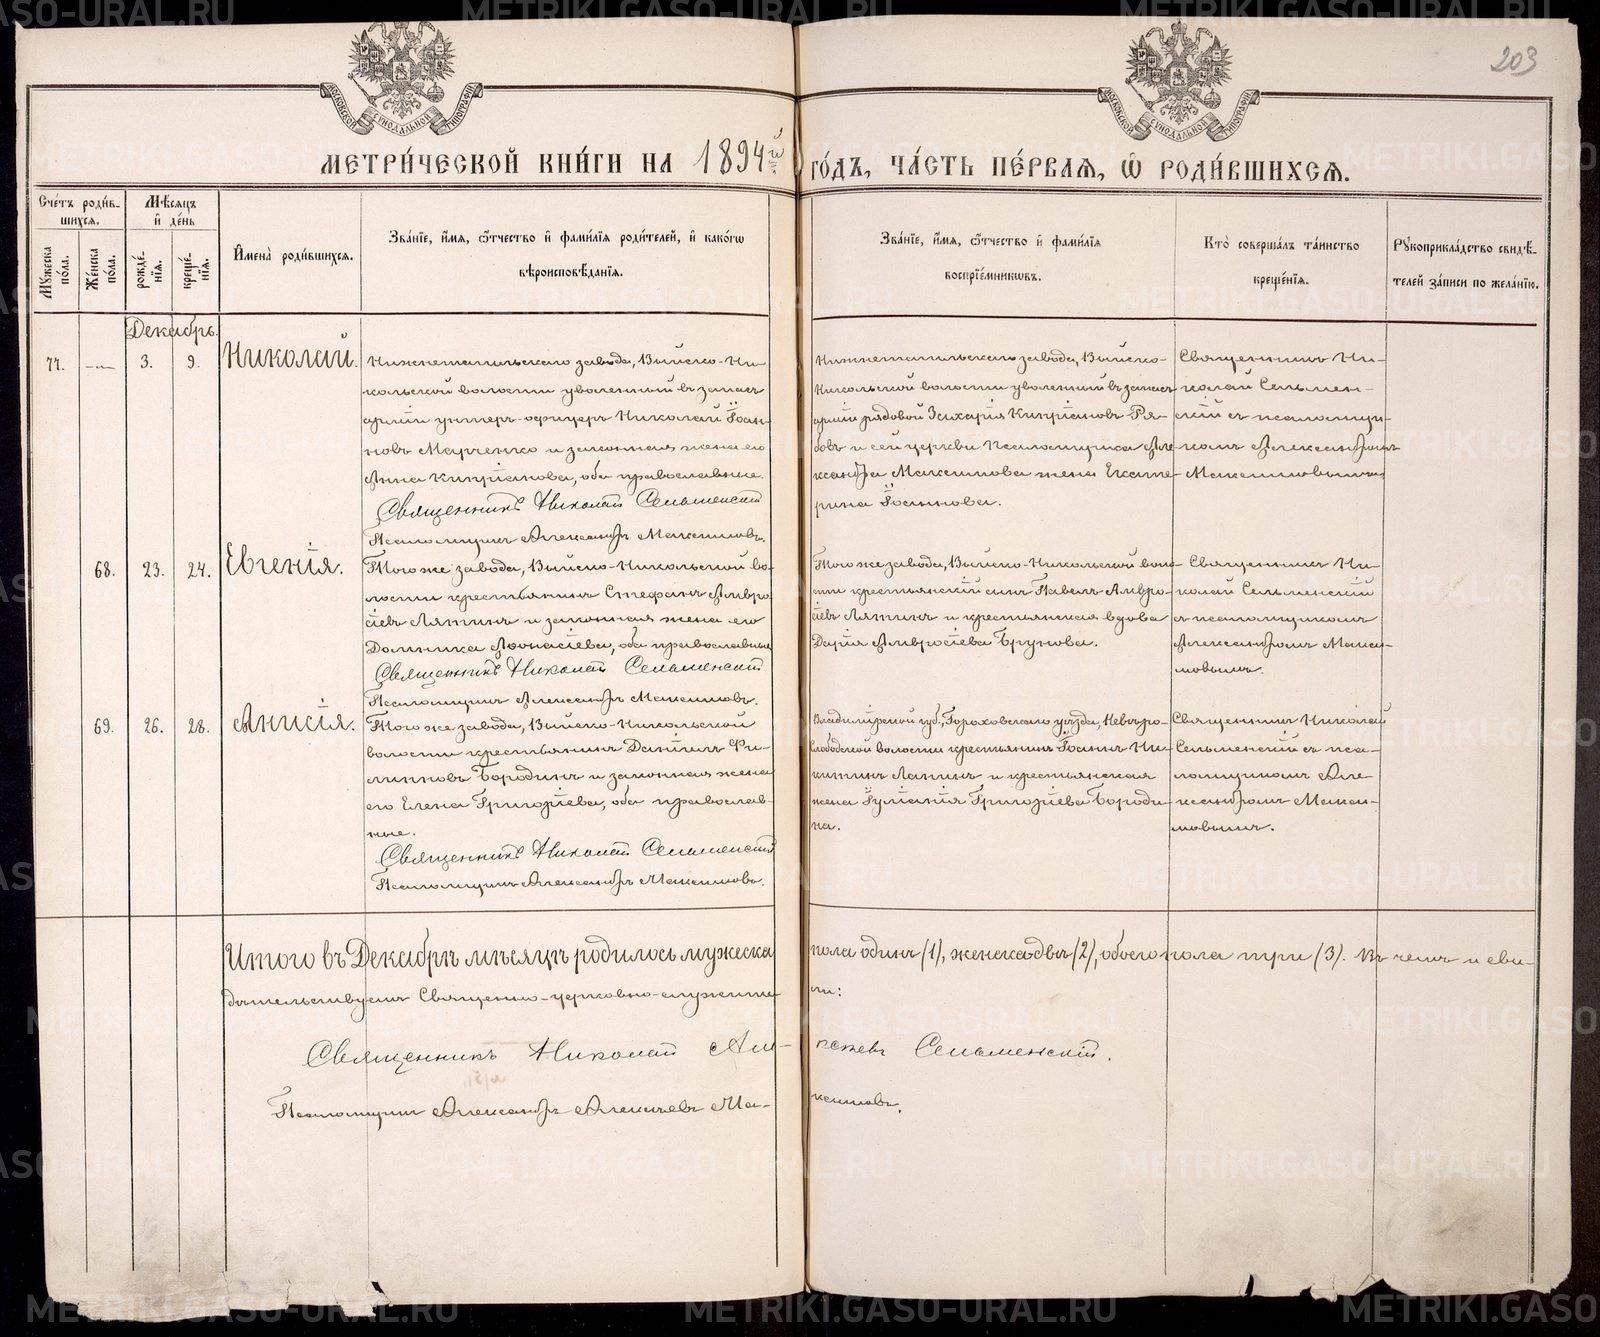 203
МОСКОВСКОЙ СѴНОДАЛЬНОЙ ТИПОГРАФІИ
МОСКОВСКОЙ СѴНОДАЛЬНОЙ ТИПОГРАФІИ
МЕТРИ́ЧЕСКОЙ КНИ́ГИ НА 1894й ГО́ДЪ, ЧА́СТЬ ПЕ́РВАЯ, Ѡ҆ РОДИ́ВШИХСѦ.
Сче́тъ роди́в-
шихся.
Мѣ́сяцъ
и҆ де́нь
Мꙋ́жеска
по́ла.
Же́нска
по́ла.
рожде́-
нїя.
креще́-
нїя.
И҆мена̀ роди́вшихся.
Зва́нїе, и҆́мя, ѻ҆́тчество и҆ фами́лїя роди́телей, и҆ како́гѡ
вѣроисповѣ́данїя.
Зва́нїе, и҆́мя, ѻ҆́тчество и҆ фами́лїя
воспрїе́мникѡвъ.
Кто̀ соверша́лъ та́инство
креще́нїя.
Рꙋкоприкла́дство свидѣ́-
телей за́писи по жела́нїю.
Декабрь.
77. — 3. 9. Николай.
Нижнетагильскаго завода, Выйско-Ни-
кольской волости уволенный въ запасъ
арміи унтеръ-офицеръ Николай Іоан-
новъ Марченко и законная жена его
Анна Кипріанова, оба православные.
Священникъ Николай Сельменскій
Псаломщикъ Александръ Максимовъ.
Нижнетагильскаго завода, Выйско-
Никольской волости уволенный въ запасъ
арміи рядовой Захарія Кипріановъ Ря-
бовъ и сей церкви Псаломщика Але-
ксандра Максимова жена Екате-
рина Іоаннова.
Священникъ Ни-
колай Сельмен-
скій съ псаломщи-
комъ Александромъ
Максимовымъ.
68. 23. 24. Евгенія.
Того же завода, Выйско-Никольской во-
лости крестьянинъ Стефанъ Амвро
сіевъ Лятинъ и законная жена его
Домника Аѳанасіева, оба православные
Священникъ Николай Сельменскій
Псаломщикъ Александръ Максимовъ.
Того же завода, Выйско-Никольской воло-
сти крестьянскій сынъ Павелъ Амвро-
сіевъ Лятинъ и крестьянская вдова
Дарія Амвросіева Брунова.
Священникъ Ни-
колай Сельменскій
съ псаломщикомъ
Александромъ Макси-
мовымъ.
69. 26. 28. Анисія.
Того же завода, Выйско-Никольской
волости крестьянинъ Даніилъ Фи-
липповъ Бородинъ и законная жена
его Елена Григоріева, оба православ-
ные.
Священникъ Николай Сельменскій
Псаломщикъ Александръ Максимовъ.
Владимірской губ., Гороховскаго уѣзда,
слободской волости крестьянинъ Іоаннъ Ни-
китинъ Лапинъ и крестьянская
жена Іуліанія Григоріева Бороди-
на.
Священникъ Николай
Сельменскій съ пса-
ломщикомъ Але
ксандромъ Макси-
мовымъ.
Итого въ Декабрѣ мѣсяцѣ родилось мужеска пола одинъ (1), женска двѣ (2), обоего пола три (3). Въ чемъ и сви-
дѣтельствуемъ Священно-церковно-служите ли:
Священникъ Николай Але- ксѣевъ Сельменскій.
Псаломщикъ Александръ Алексѣевъ Ма- ксимовъ.
METRIKI.GASO-URAL.RU